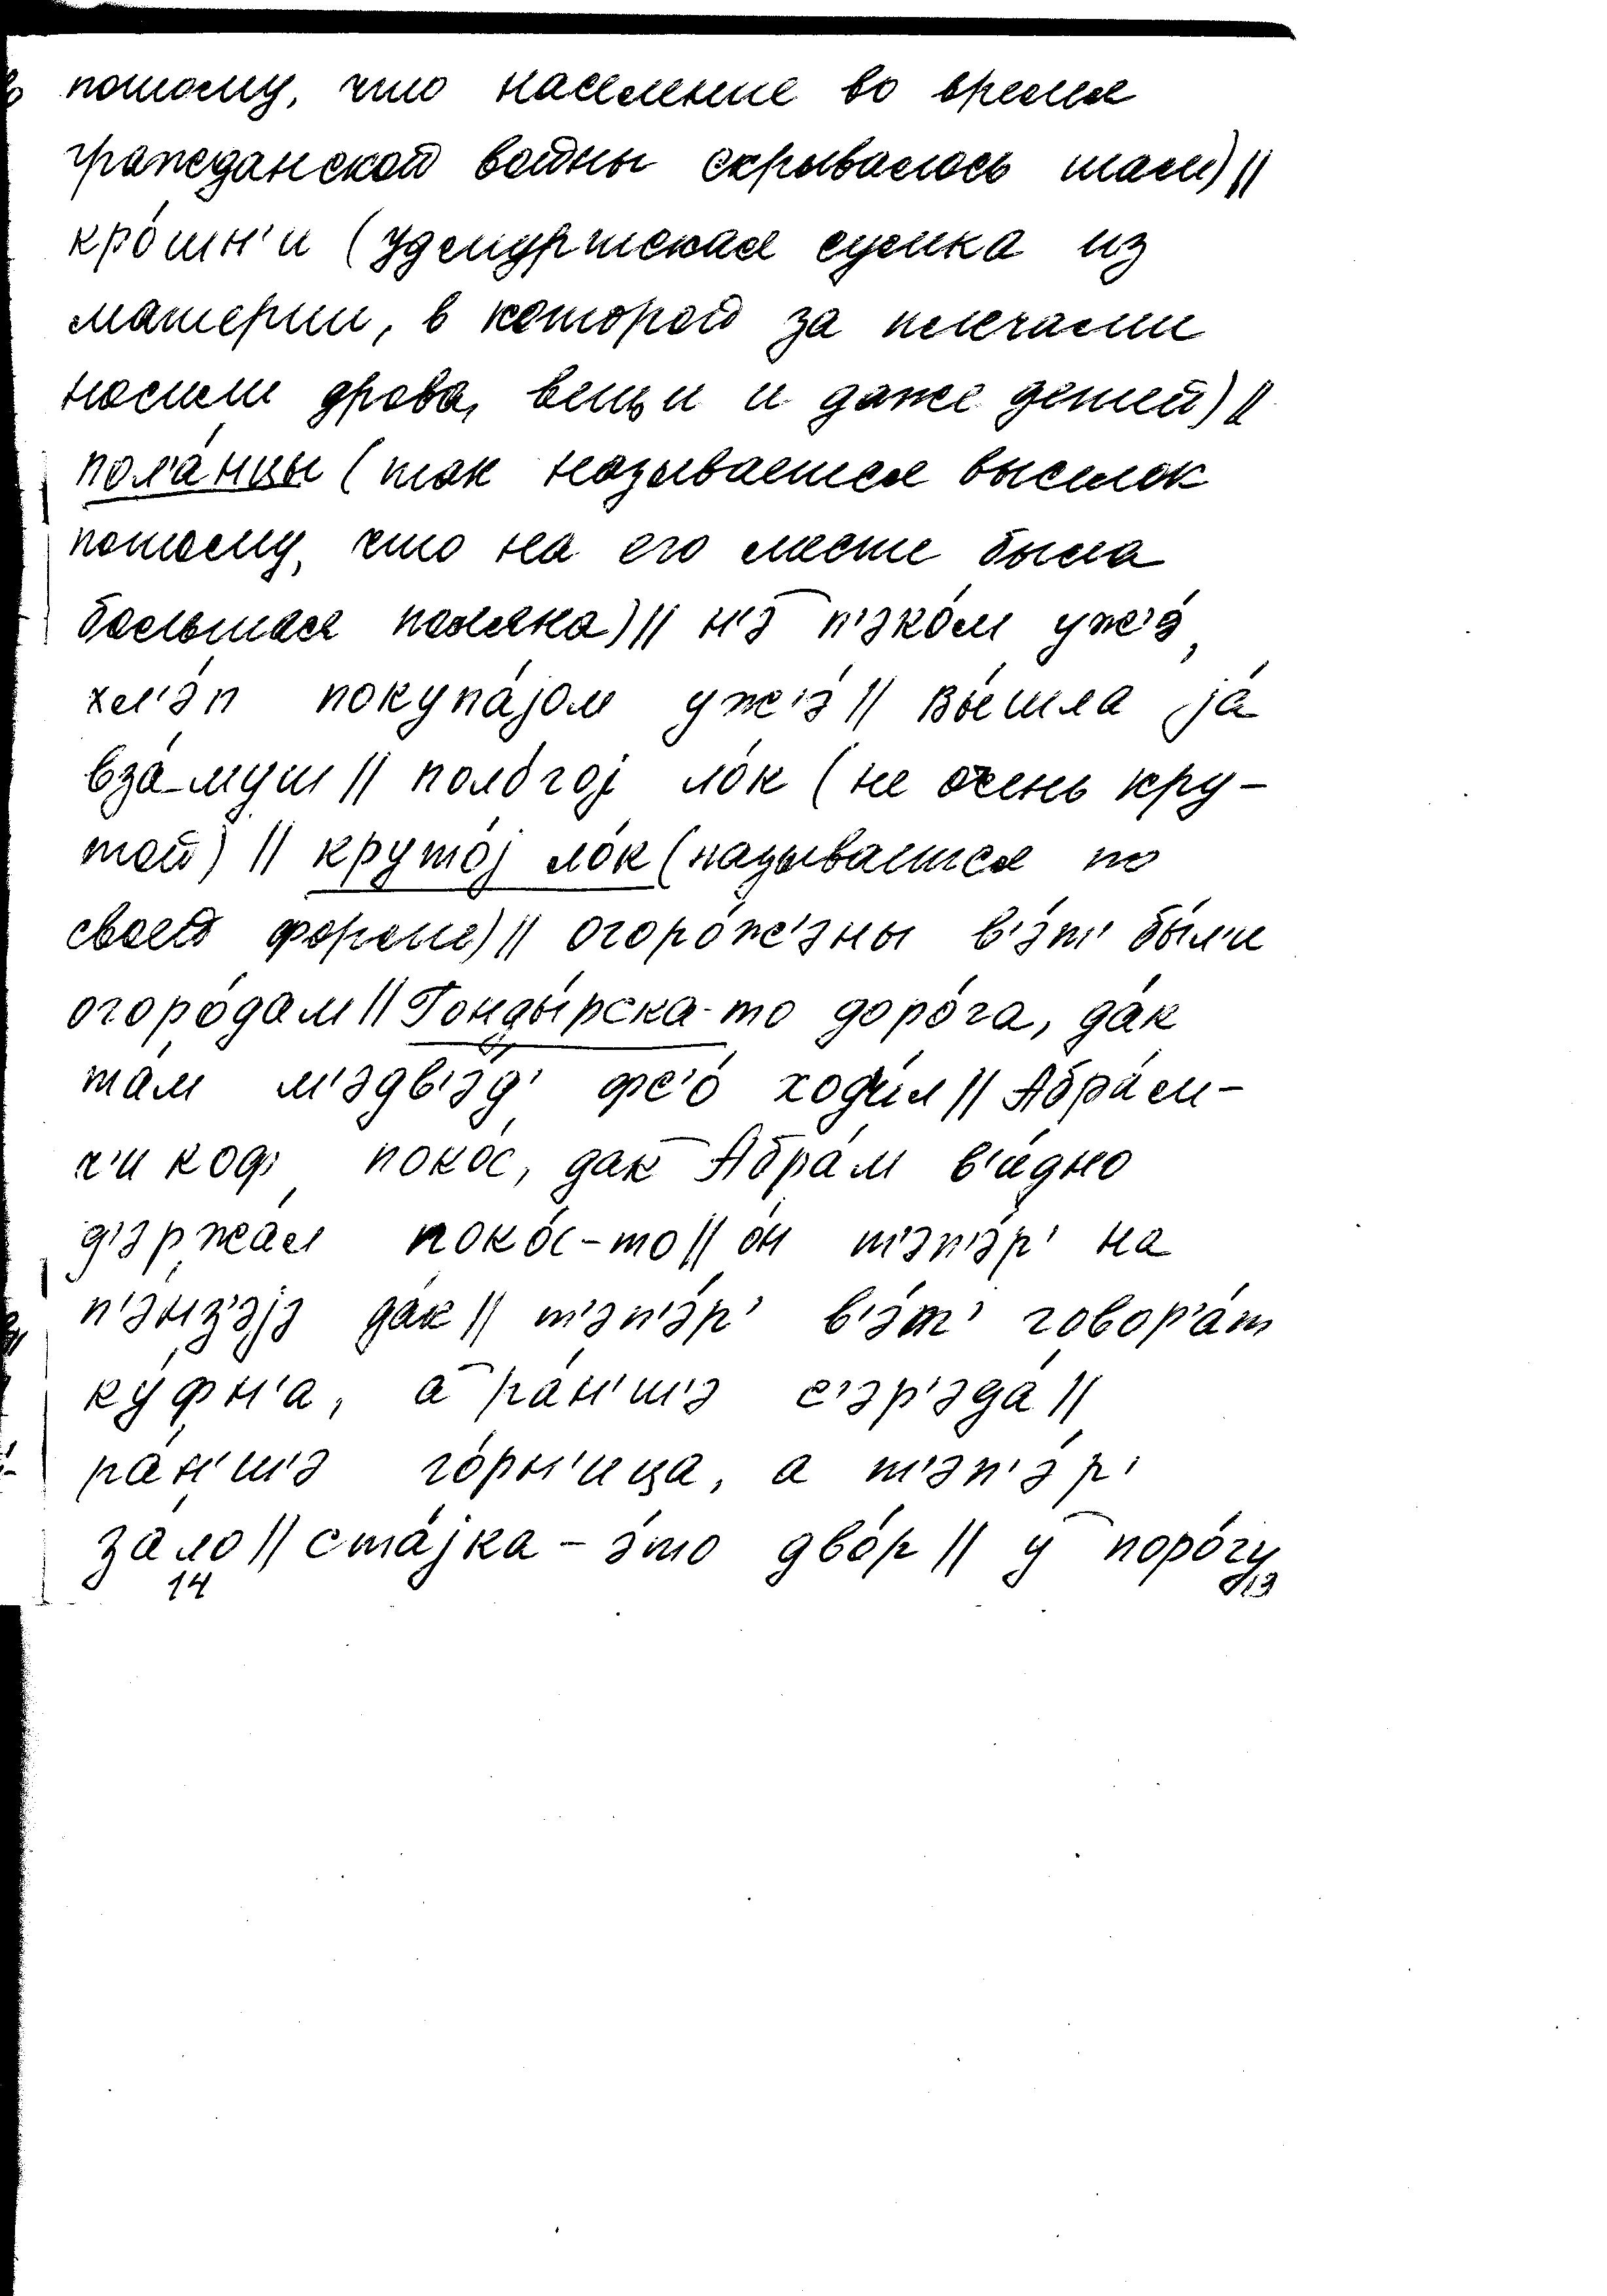 потому, что население во время
гражданской войны скрывалось там) ||
кро́шн'и (удмуртская сумка из
материи, в которой за плечами
носили дрова, вещи и даже детей) ||
пол'а́нцы (так называется выселок
потому, что на его месте была
большая поляна) || н'э п'эко́м уж'э́,
хл'э́п покупа́јом уж'э́ || вы́шла ја́
вза́муш || поло́гој ло́к (не очень кру-
той) || круто́ј ло́к (называется по
своей форме) || огоро́ж'эны в'э́т' бы́л'и
огоро́дам || Гонды́рска-то доро́га, да́к
та́м м'эдв'э́д' фс'о́ ход'и́л || Абра́м-
ч'икоф поко́с, дак Абра́м в'и́дно
д'эржа́л поко́с-то || о́н т'эп'э́р' на
п'э́нз'эјэ да́к || т'эп'э́р' в'э́т' говор'а́т
ку́фн'а, а ра́н'ш'э с'эр'эда́ ||
ра́н'ш'э го́рн'ица, а т'эп'э́р'
за́ло || ста́јка – э́то дво́р || у поро́гу
14 13